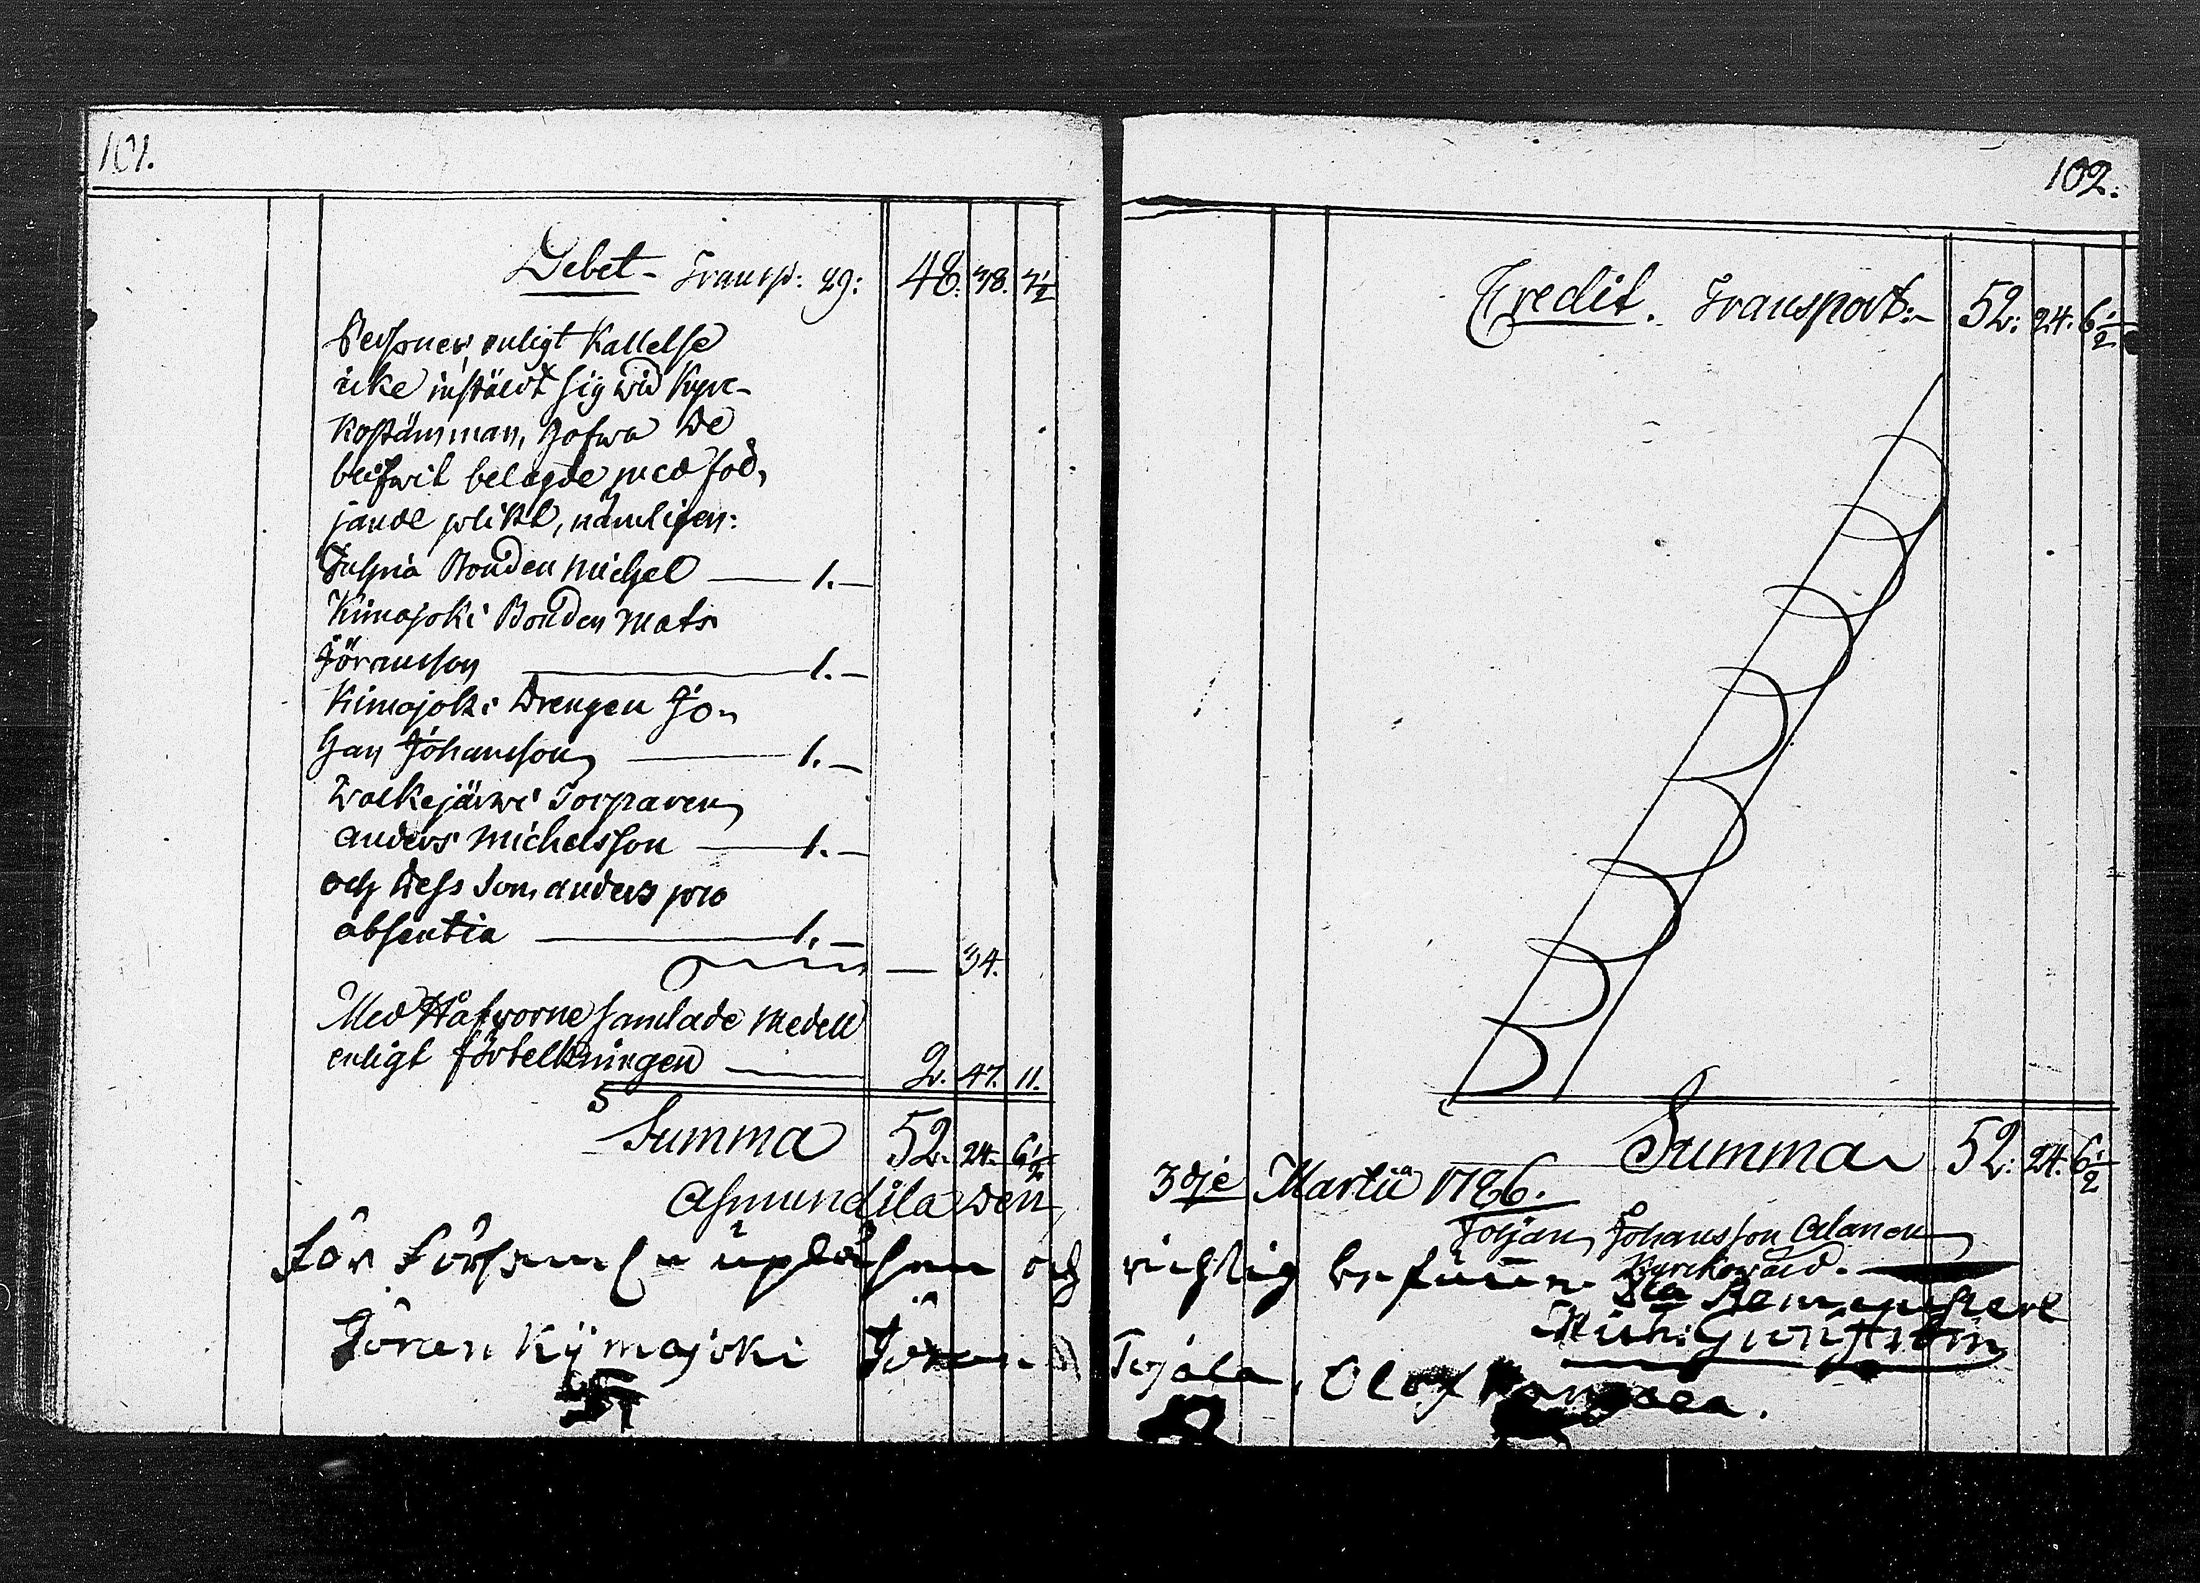 101.
Debet - Transp: 29: 48. 38. 7½
Persone enligt Kallelse
icke instäldt sig wid Kyr-
kostämman, hafwa de
blifwit belagde med föl-
jande plikt, nämligen:
Bonden Michel — 1. —
Kimajoki Bonden Mats
Jöransson — 1. —
Kimajoki Drengen Jo-
han Johansson — 1. —
Walkejärwi Torparen
Anders Michelsson — 1. —
och dess Son Anders pro
absentia — 1. —
— 34.
Med Håfworne samlade Medell
enligt förtekningen — 2. 47. 11.
Summa 52. 24. 6½
Asmundila den
102.
Credit. Transport:- 52: 24. 6½
Summa 52: 24. 6½
3dje Martii 1786.
Johansson Alanen
Kyrckowärd.
För Församl:n upläsen och richtig befunnen
Jöran Kÿmajoki Jöran Tojala. Olof